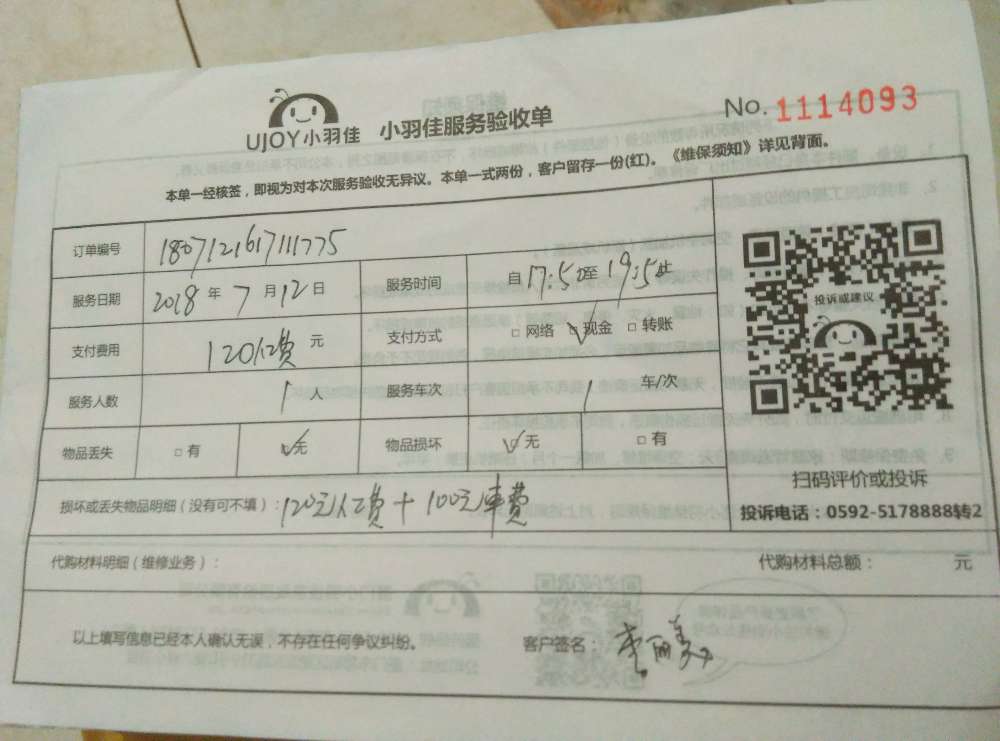 UJOY小羽佳 小羽佳服务验收单 No. 1114093
本单一经核签，即视为对本次服务验收无异议。本单一式两份，客户留存一份(红)。《维保须知》详见背面。
订单编号 180712161711775
服务日期 2018 年 7 月 12 日 服务时间 自 17:50至 19:5 止
支付费用 120 费 元 支付方式 □ 网络 ☑ 现金 □ 转账
服务人数 1 人 服务车次 1 车/次
物品丢失 □ 有 ☑ 无 物品损坏 ☑ 无 □ 有
损坏或丢失物品明细（没有可不填）：120元人工费 + 100元车费
投诉或建议
扫码评价或投诉
投诉电话：0592-5178888转2
代购材料明细（维修业务）： 代购材料总额： 元
以上填写信息已经本人确认无误，不存在任何争议纠纷。 客户签名： 李丽美